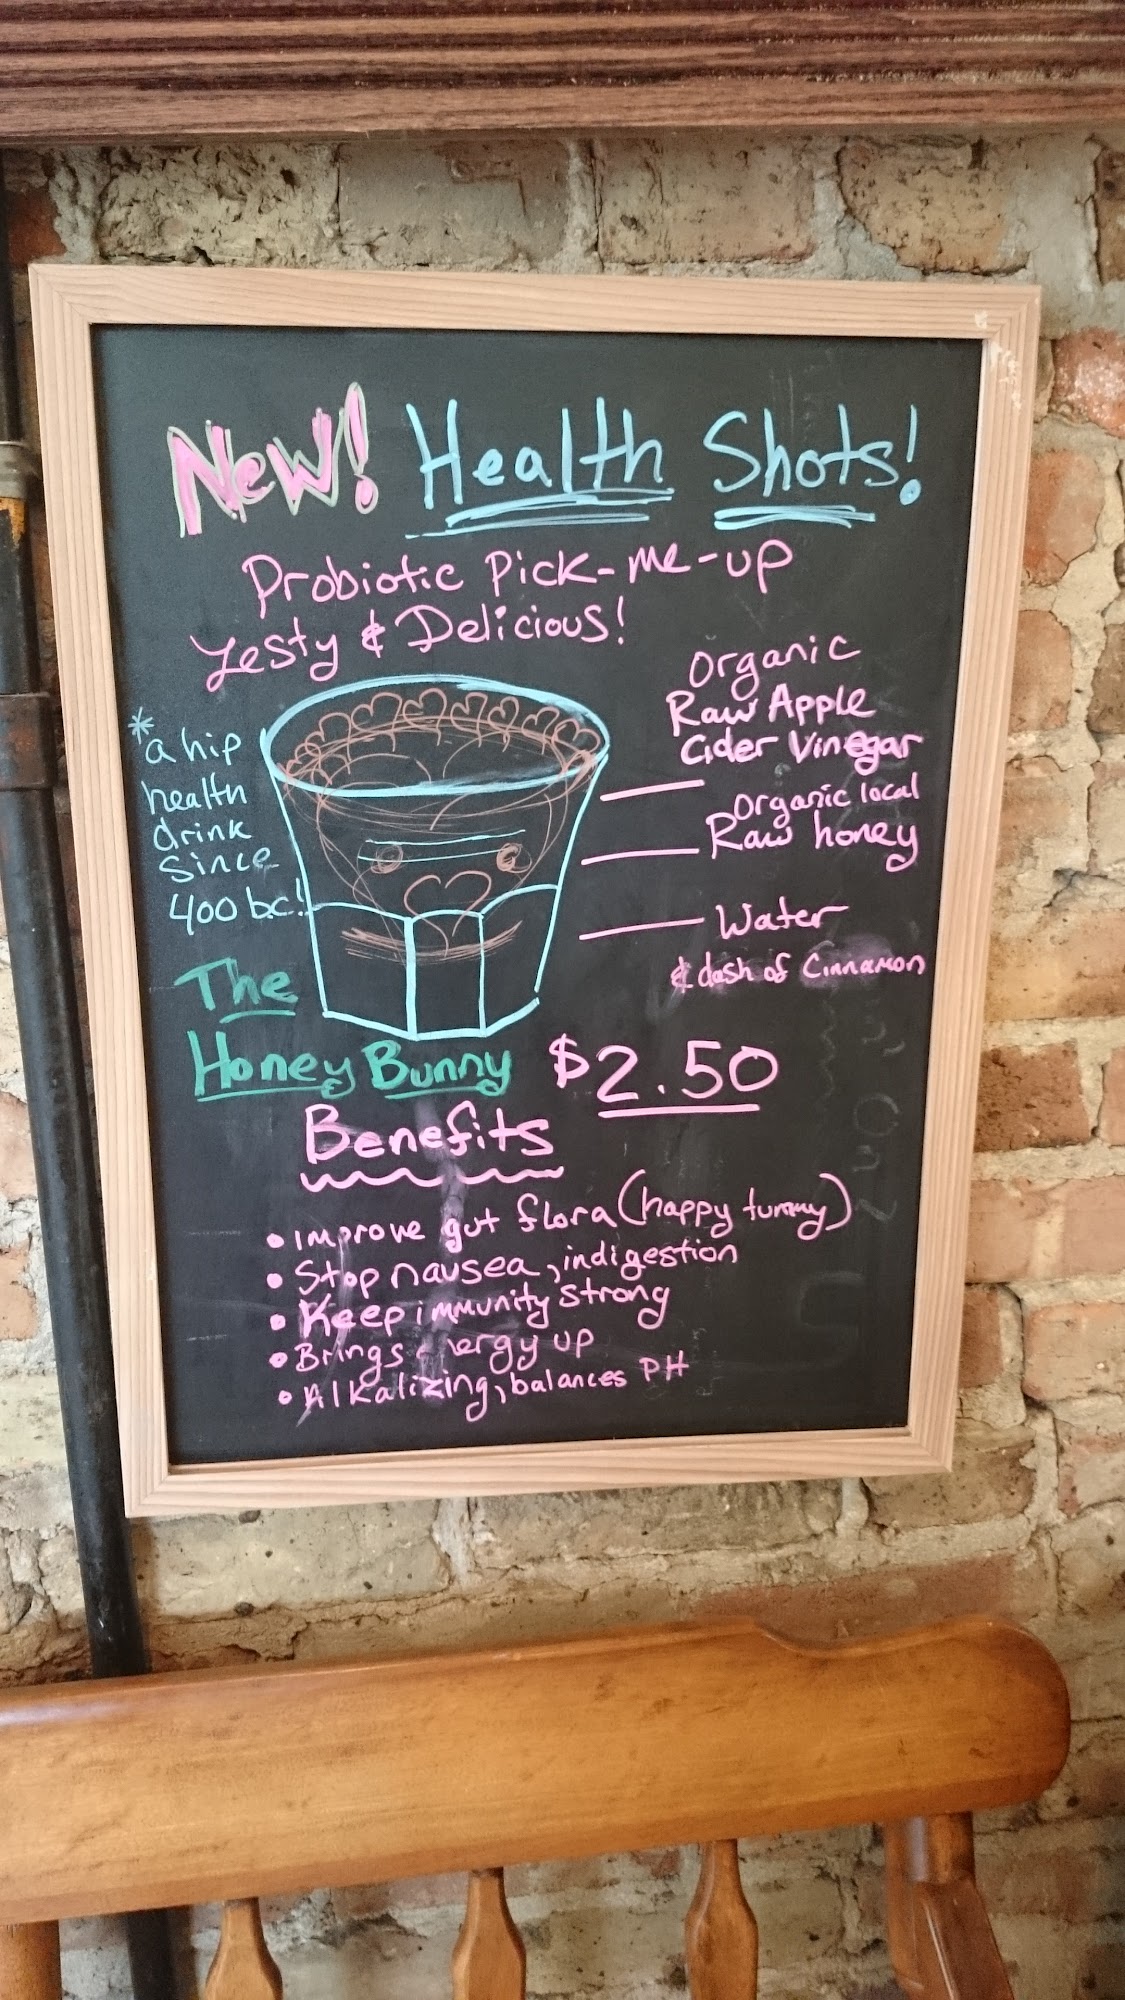 New! Health Shots!
Probiotic Pick-me-up
Zesty & Delicious!
*a hip
health
drink
since
400 b.c!
Organic
Raw Apple
Cider Vinegar
Organic local
Raw honey
Water
& dash of Cinnamon
The
Honey Bunny $2.50
Benefits
• Improve gut flora (happy tummy)
• Stop nausea, indigestion
• Keep immunity strong
• Brings energy up
• Alkalizing, balances PH